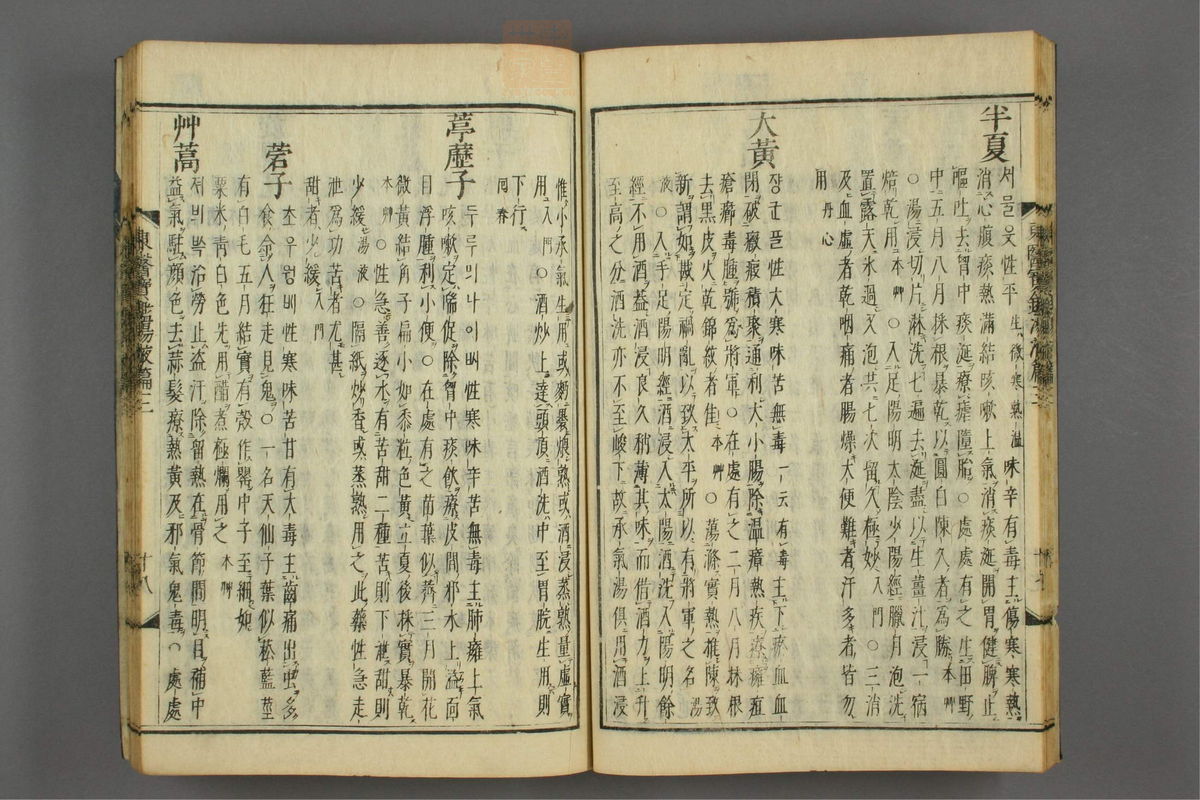 半夏
서믈웃性平生微寒熟溫味辛有毒主傷寒寒熱
消心腹痰熱滿結咳嗽上氣消痰涎開胃健脾止
嘔吐去胷中痰涎療瘧墮胎○處處有之生田野
中五月八月採根暴乾以圓白陳久者爲勝本艸
○湯浸切片淋洗七遍去涎盡以生薑汁浸一宿
焙乾用本艸○入足陽明太陰少陽經臘月泡洗
置露天氷過又泡共七次留久極妙入門○三消
及血虛者乾咽痛者腸燥大便難者汗多者皆勿
用丹心
大黃
쟝군플性大寒味苦無毒一云有毒主下瘀血血
閉破癥瘕積聚通利大小腸除溫瘴熱疾療癰疽
瘡癤毒腫號爲將軍○在處有之二月八月採根
去黑皮火乾錦紋者佳本艸○蕩滌實熱推陳致
新謂如戡定禍亂以致太平所以有將軍之名湯
液○入手足陽明經酒浸入太陽酒洗入陽明餘
經不用酒盖酒浸良久稍薄其味而借酒力上升
至高之分酒洗亦不至峻下故承氣湯俱用酒浸
惟小承氣生用或麪裹煨熟或酒浸蒸熟量虛實
用入門○酒炒上達頭頂酒洗中至胃脘生用則
下行回春
葶藶子
두루믜나이ᄡᅵ性寒味辛苦無毒主肺癰上氣
咳嗽定喘促除胷中痰飮療皮間邪水上溢面
目浮腫利小便○在處有之苗葉似薺三月開花
微黃結角子扁小如黍粒色黃立夏後採實暴乾
本艸○性急善逐水有苦甜二種苦則下泄甜則
少緩湯液○隔紙炒香或蒸熟用之此藥性急走
泄爲功苦者尤甚
甜者少緩入門
莨菪子
초우웡ᄡᅵ性寒味苦甘有大毒主齒痛出虫多
食令人狂走見鬼○一名天仙子葉似菘藍莖
有白毛五月結實有殼作罌中子至細如
粟米靑白色先用醋煮極爛用之本艸
艸蒿
져븨ᄡᅮᆨ治勞止盜汗除留熱在骨節間明目補中
益氣駐顔色去蒜髮療熱黃及邪氣鬼毒○處處
東醫寶鑑湯液篇三
廿八